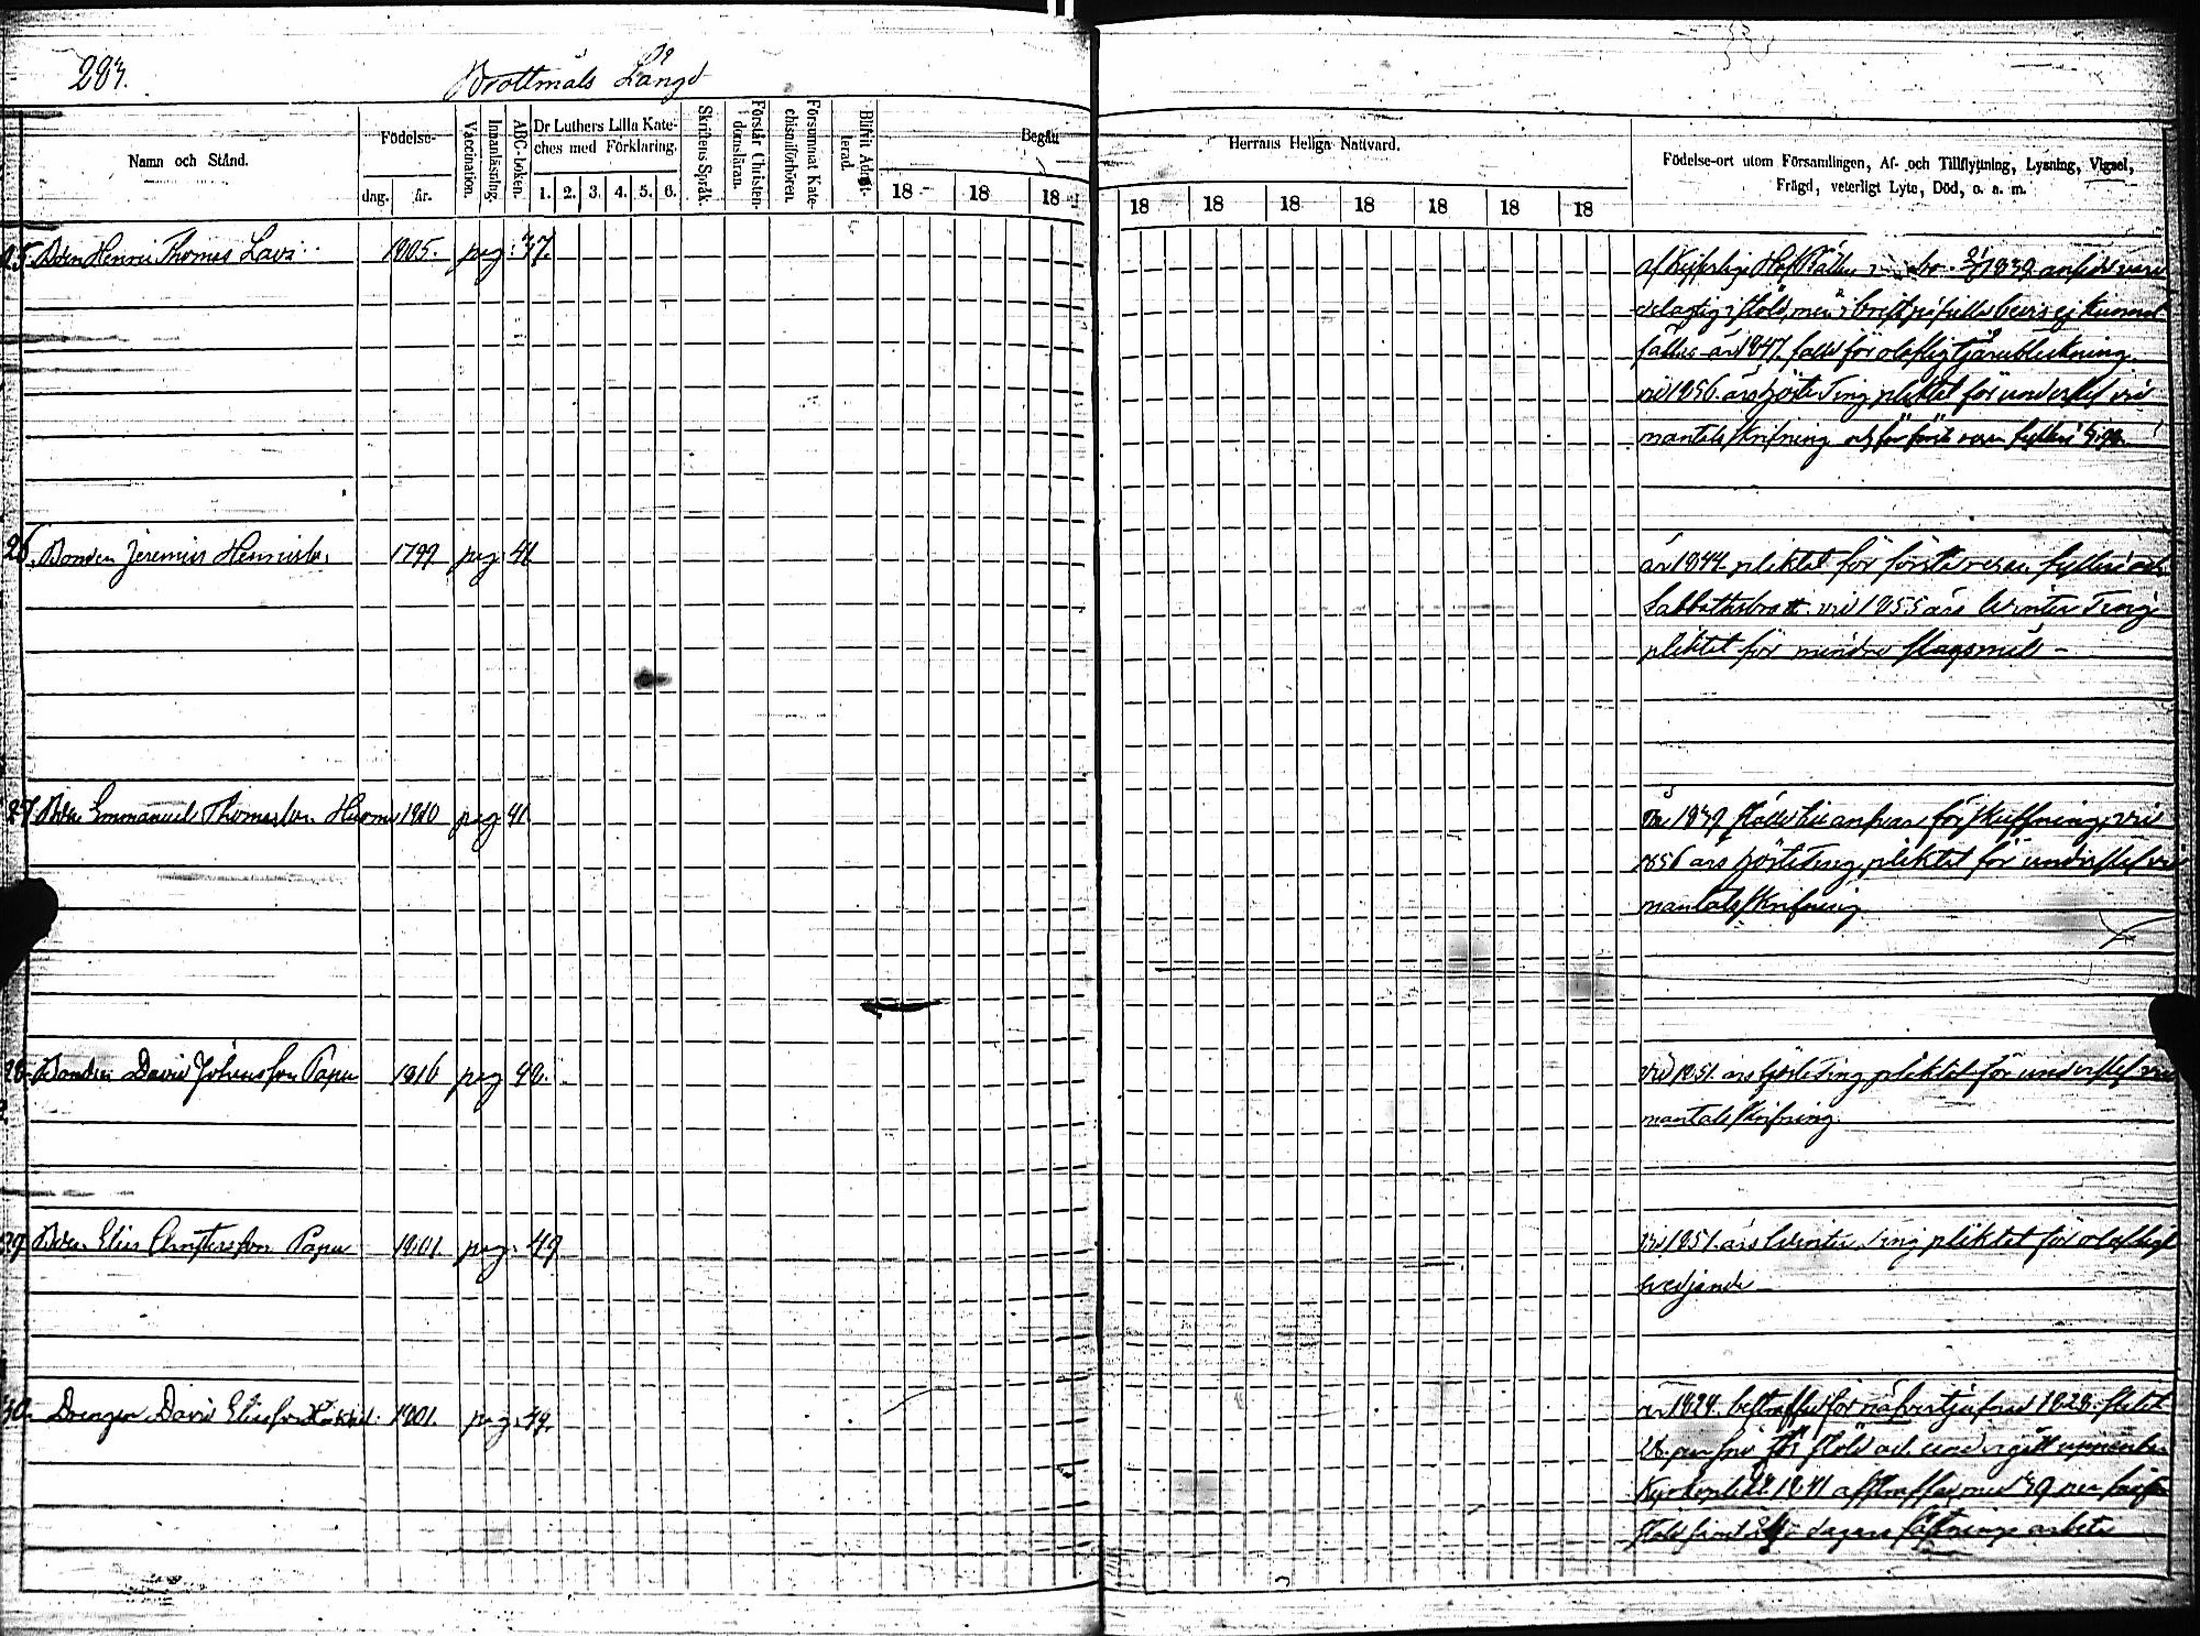 283.
Brottmåls Längd
Namn och Stånd.
Födelse-
dag. år.
Vaccination.
Innanläsning.
ABC-boken.
Dr Luthers Lilla Kate-
ches med Förklaring.
1. 2. 3. 4. 5. 6.
Skriftens Språk.
Förstår Christen-
domsläran.
Försummat Kate-
chismiförhören.
Blifvit Admit-
terad.
Begått
18 18 18
Herrans Heliga Nattvard.
18 18 18 18 18 18 18
Födelse-ort utom Församlingen, Af- och Tillflyttning, Lysning, Vigsel,
Frägd, veterligt Lyte, Död, o. a. m.
25. Bden Henric Thomas 1805. pag: 37.
af Kejserlige Hof Rätten 1839 ansedd vara
delagtig i stöld, men i brist på fulla bevis ej kunnat
fällas år 1847 fälld för oloflig
vid 1856 års höste Ting pliktat för underslef vid
mantalsskrifning och för första resan fylleri
26. Bonden Jeremias Henricsson 1799 pag: 41
år 1844 pliktat för första resan fylleri och
Sabbathsbrott. vid 1855 års Winter Ting
pliktat för mindre slagsmål -
27. Bden Emmanuel Thomasson 1810 pag 41
År 1839 ställd till ansvar för skuffning, vid
1856 års höste Ting pliktat för underslef vid
mantalsskrifning
28. Bonden David Johansson Papu 1816 pag 48.
vid 1851 års höste Ting pliktat för underslef vid
mantalsskrifning.
29. Bden Elias Christersson Papu 1801. pag: 49
vid 1851 års Winter Ting pliktat för olofligt
svedjande -
30. Drengen David Elisson 1801. pag: 49.
år 1824. bestraffad för
för stöld och undergått uppenbar
Kyrkoplikt. 1841 afstraffad med 39 par
stöld samt dagars fästnings arbete